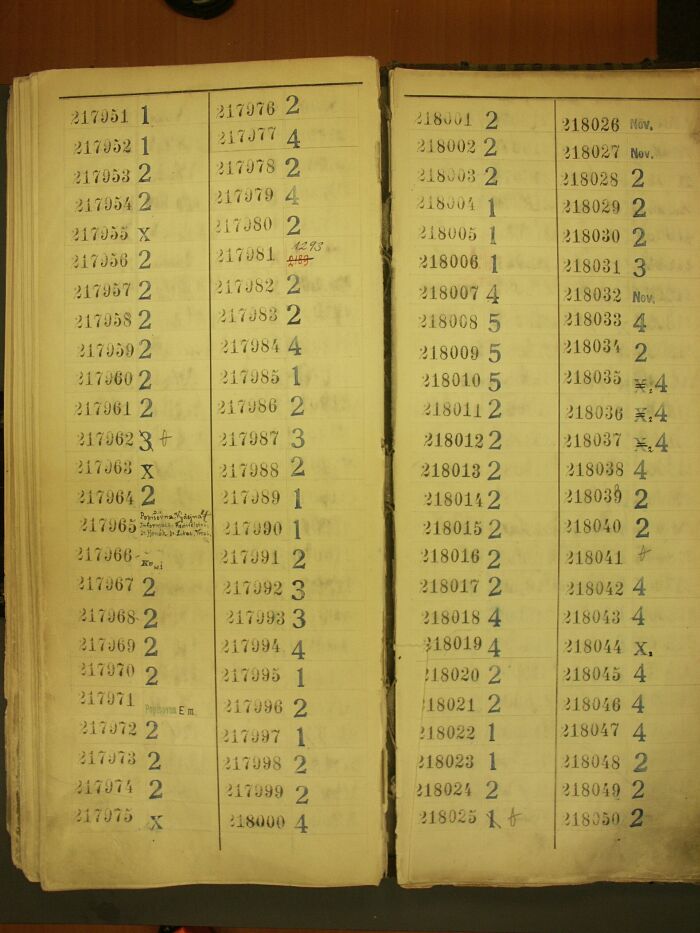 217951 1
217952 1
217953 2
217954 2
217955 X
217956 2
217957 2
217958 2
217959 2
217960 2
217961 2
217962 3
217963 X
217964 2
217965
217966
217967 2
217968 2
217969 2
217970 2
217971 Popisovna E m.
217972 2
217973 2
217974 2
217975 X
217976 2
217977 4
217978 2
217979 4
217980 2
217981 1293
217982 2
217983 2
217984 4
217985 1
217986 2
217987 3
217988 2
217989 1
217990 1
217991 2
217992 3
217993 3
217994 4
217995 1
217996 2
217997 1
217998 2
217999 2
218000 4
218001 2
218002 2
218003 2
218004 1
218005 1
218006 1
218007 4
218008 5
218009 5
218010 5
218011 2
218012 2
218013 2
218014 2
218015 2
218016 2
218017 2
218018 4
218019 4
218020 2
218021 2
218022 1
218023 1
218024 2
218025 1
218026 Nov.
218027 Nov.
218028 2
218029 2
218030 2
218031 3
218032 Nov.
218033 4
218034 2
218035 X. 4
218036 X. 4
218037 X. 4
218038 4
218039 2
218040 2
218041
218042 4
218043 4
218044 X.
218045 4
218046 4
218047 4
218048 2
218049 2
218050 2